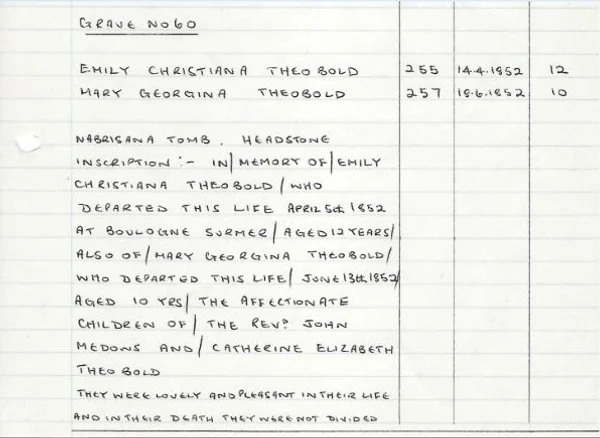 GRAVE NO 60
EMILY CHRISTIANA THEOBOLD 255 14.4.1852 12
MARY GEORGINA THEOBOLD 257 18.6.1852 10
NABRISANA TOMB. HEADSTONE
INSCRIPTION :- IN/ MEMORY OF/ EMILY
CHRISTIANA THEOBOLD / WHO
DEPARTED THIS LIFE APRIL 5th 1852
AT BOULOGNE SURMER/ AGED 12 YEARS/
ALSO OF/ MARY GEORGINA THEOBOLD/
WHO DEPARTED THIS LIFE/ JUNE 13th 1852/
AGED 10 YRS/ THE AFFECTIONATE
CHILDREN OF/ THE REVD JOHN
MEDONS AND/ CATHERINE ELIZABETH
THEOBOLD
THEY WERE LOVELY AND PLEASANT IN THEIR LIFE
AND IN THEIR DEATH THEY WERE NOT DIVIDED